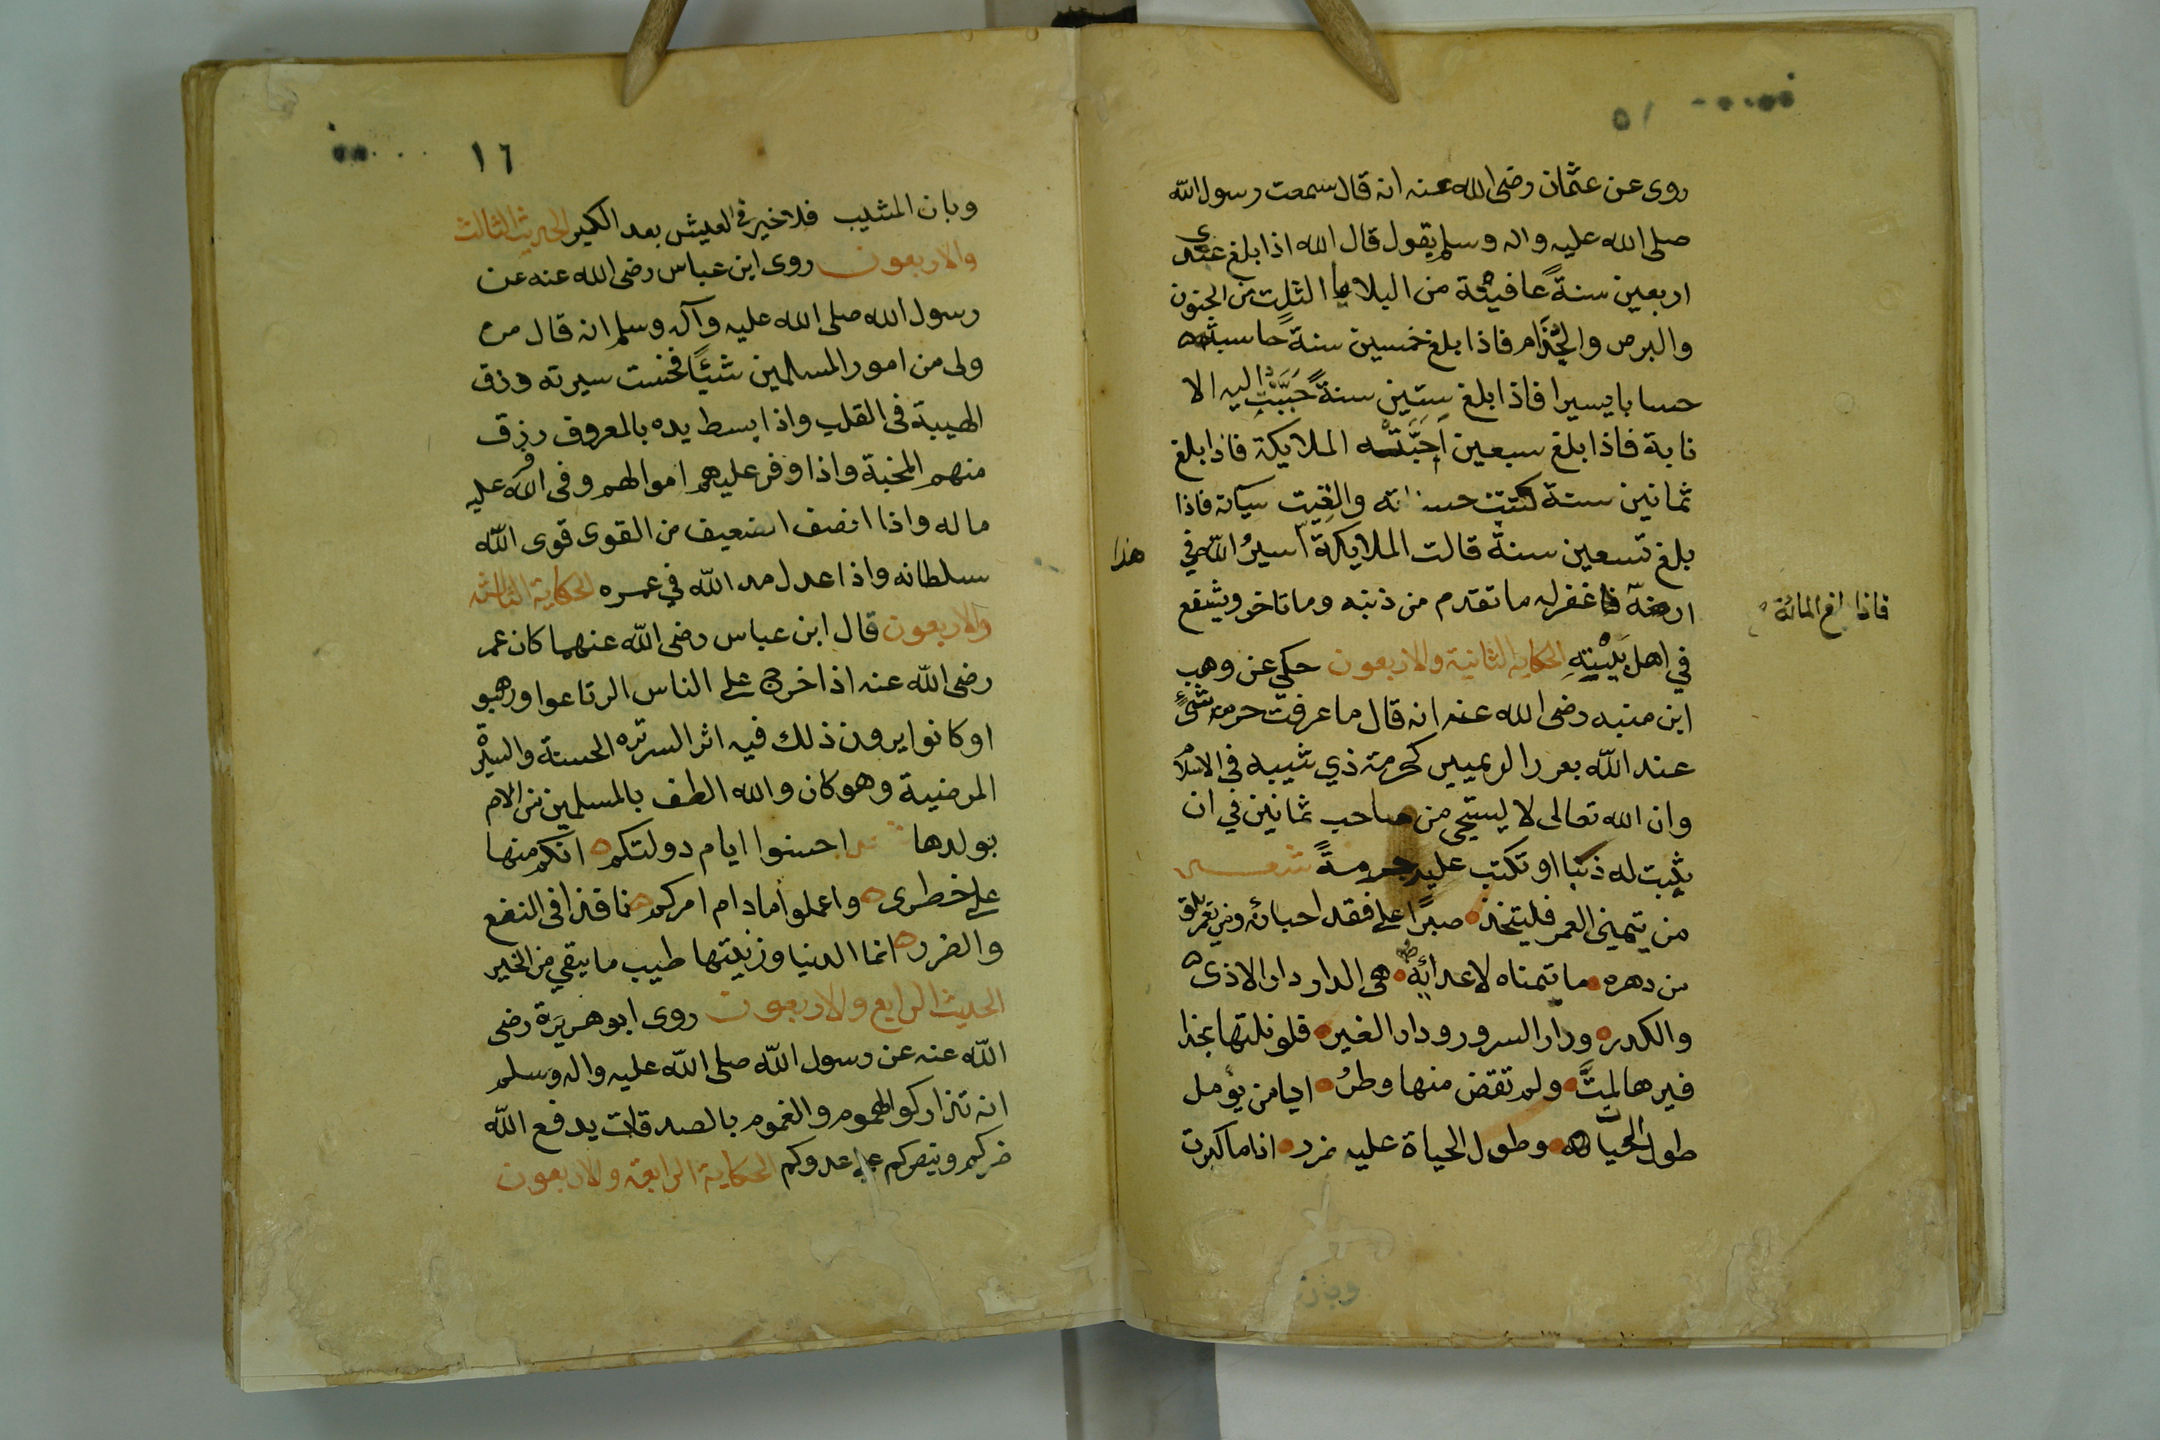 ٥١
روى عن عثمان رضى الله عنه انه قال سمعت رسول الله
صلى الله عليه واله وسلم يقول قال الله اذا بلغ عبدى
اربعين سنةً عافيته من البلايا الثلث من الجنون
والبرص والجُذَام فاذا بلغ خمسين سنة حاسبته
حسابا يسيرا فاذا بلغ ستين سنةً حَبَّبْتُ اليه الا
نابة فاذا بلغ سبعين اَحَبَّتْه الملايكة فاذا بلغ
ثمانين سنة كتبت حسناته والقيت سيآته فاذا
بلغ تسعين سنة قالت الملايكة اسيرُ الله في
ارضه فاغفر له ما تقدم من ذنبه وما تاخر ويشفع
في اهل بَيْتِهِ الحكاية الثانية والاربعون حكى عن وهب
ابن منبه رضى الله عنه انه قال ما عرفت حرمة شئٍ
عند الله بعد كحرمة ذي شيبه في الاسلام
وان الله تعالى لا يستحى من صاحب ثمانين في ان
يثبت له ذنبا او تكتب عليه جرمةً شعر
من يتمنى العمر فليتخذ صبرًا على فقد احبائه ومن
من دهره ما يتمناه لاعدائِه هى الدار دار الاذى
والكدر ودار السرور ودار الغير فلو نلتها بحذا
فيرها لمِتَّ ولم تقض منها وطرُ ايا من يؤمل
طول الحيات وطول الحياة عليه ضرر اذا ما كبرت
فاذا بلغ المائة
هذا
وبان
١٦
وبان المشيب فلا خير في العيش بعد الكبر الحديث الثالث
والاربعون روى ابن عباس رضى الله عنه عن
رسول الله صلى الله عليه وآله وسلم انه قال من
ولى من امور المسلمين شيئًا فحسنت سيرته رزق
الهيبة في القلب واذا بسط يده بالمعروف رزق
منهم المحبة واذا وفر عليهم اموالهم وفر الله عليه
ماله واذا انصف الضعيف من القوى قوى الله
سلطانه واذا عدل مد الله في عمره الحكاية الثالثة
والاربعون قال ابن عباس رضى الله عنهما كان عمر
رضى الله عنه اذا خرج على الناس ارتاعوا ورهبو
او كانوا يرون ذلك فيه اثر السرته الحسنة والسيرة
المرضية وهو كان والله الطف بالمسلمين من الام
بولدها شعر احسنوا ايام دولتكم انكم منها
على خطرى واعملوا ما دام امركم نافذا في النفع
والضرر انما الدنيا وزينتها طيب ما يبقى من الخير
الحديث الرابع والاربعون روى ابو هريرة رضى
الله عنه عن رسول الله صلى الله عليه واله وسلم
انه تداركوا الهموم والغموم بالصدقات يدفع الله
ضركم وينصركم على عدوكم الحكاية الرابعة والاربعون